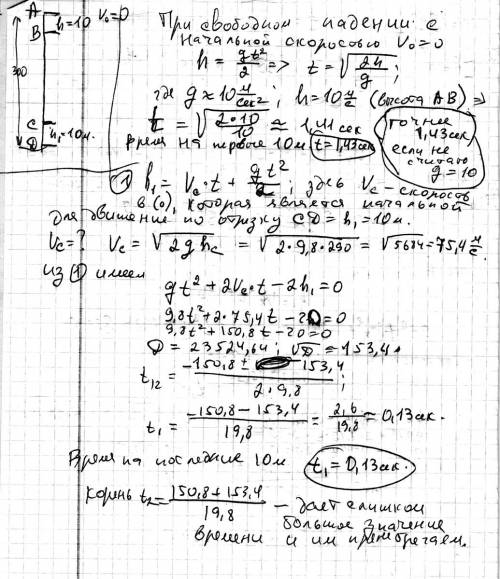 A h=10 V₀=0
B
300
C
D h₁=10м.
При свободном падении с
начальной скоростью V₀=0
h = gt²/2 => t = √(2h/g);
где g ≈ 10 м/сек²; h=10 м/с (высота AB) =>
t = √(2·10/10) ≈ 1,41 сек
точнее
1,43 сек
если не
считаю
g=10
время на первые 10м t=1,43сек
① h₁ = Vc·t + gt²/2; здесь Vc – скорость
в (c), которая является начальной
для движения по отрезку CD = h₁ = 10м.
Vc = ? Vc = √(2ghc) = √(2·9,8·290) = √5684 = 75,4 м/с
из ① имеем
gt² + 2Vc·t − 2h₁ = 0
9,8t² + 2·75,4t − 20 = 0
9,8t² + 150,8t − 20 = 0
D = 23524,64; √D = 153,4
t₁₂ = (−150,8 ± 153,4)/(2·9,8);
t₁ = (−150,8 − 153,4)/19,8 = 2,6/19,8 ≈ 0,13сек.
Время на последние 10м t₁ = 0,13сек.
Корень t₂ = (150,8+153,4)/19,8 – дает слишком
большое значение
времени и им пренебрегаем.